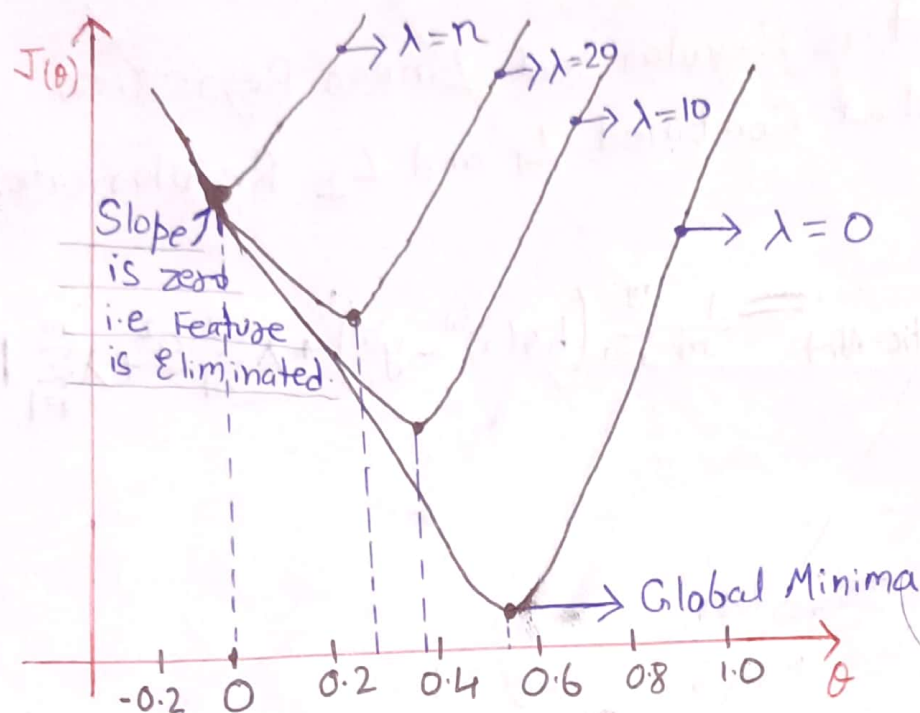 J(θ)
λ=n
λ=29
λ=10
λ = 0
Slope
is zero
i.e Feature
is Eliminated.
Global Minima
-0.2 0 0.2 0.4 0.6 0.8 1.0 θ